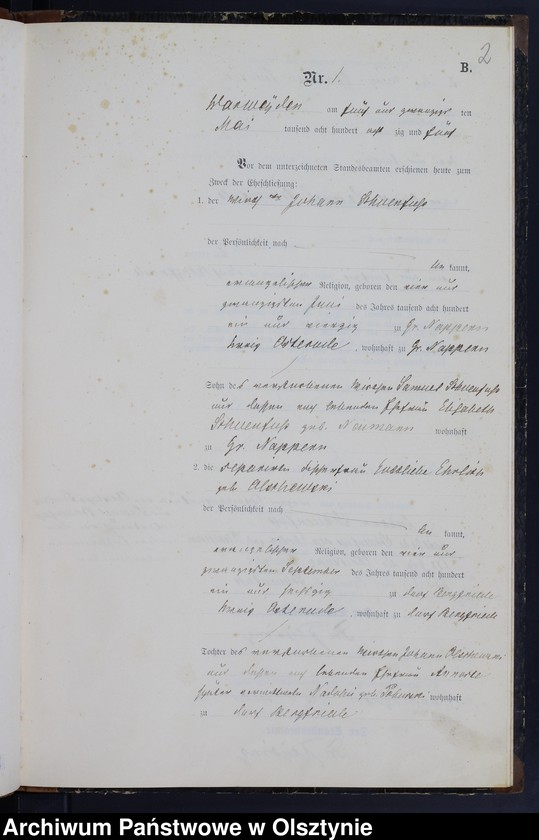 2
B.
Nr. 1.
am fünf und zwanzig ten
Mai tausend acht hundert acht zig und fünf
Vor dem unterzeichneten Standesbeamten erschienen heute zum
Zweck der Eheschließung:
1. der Wirth Johann
der Persönlichkeit nach
kannt,
evangelischer Religion, geboren den vier und
zwanzigsten Juni des Jahres tausend acht hundert
ein und vierzig zu Gr. Nappern
Kreis Osterode, wohnhaft zu Gr. Nappern
Sohn des verstorbenen Wirthen Samuel
und dessen noch lebenden Ehefrau Elisabeth
geb. Neumann wohnhaft
zu Gr. Nappern
2. die
geb.
der Persönlichkeit nach
kannt,
evangelischer Religion, geboren den vier und
zwanzigsten September des Jahres tausend acht hundert
ein und zu Dorf Bergfriede
Kreis Osterode, wohnhaft zu Dorf Bergfriede
Tochter des verstorbenen Wirthen Johann
und dessen noch lebenden Ehefrau
später geb. wohnhaft
zu Dorf Bergfriede
Archiwum Państwowe w Olsztynie